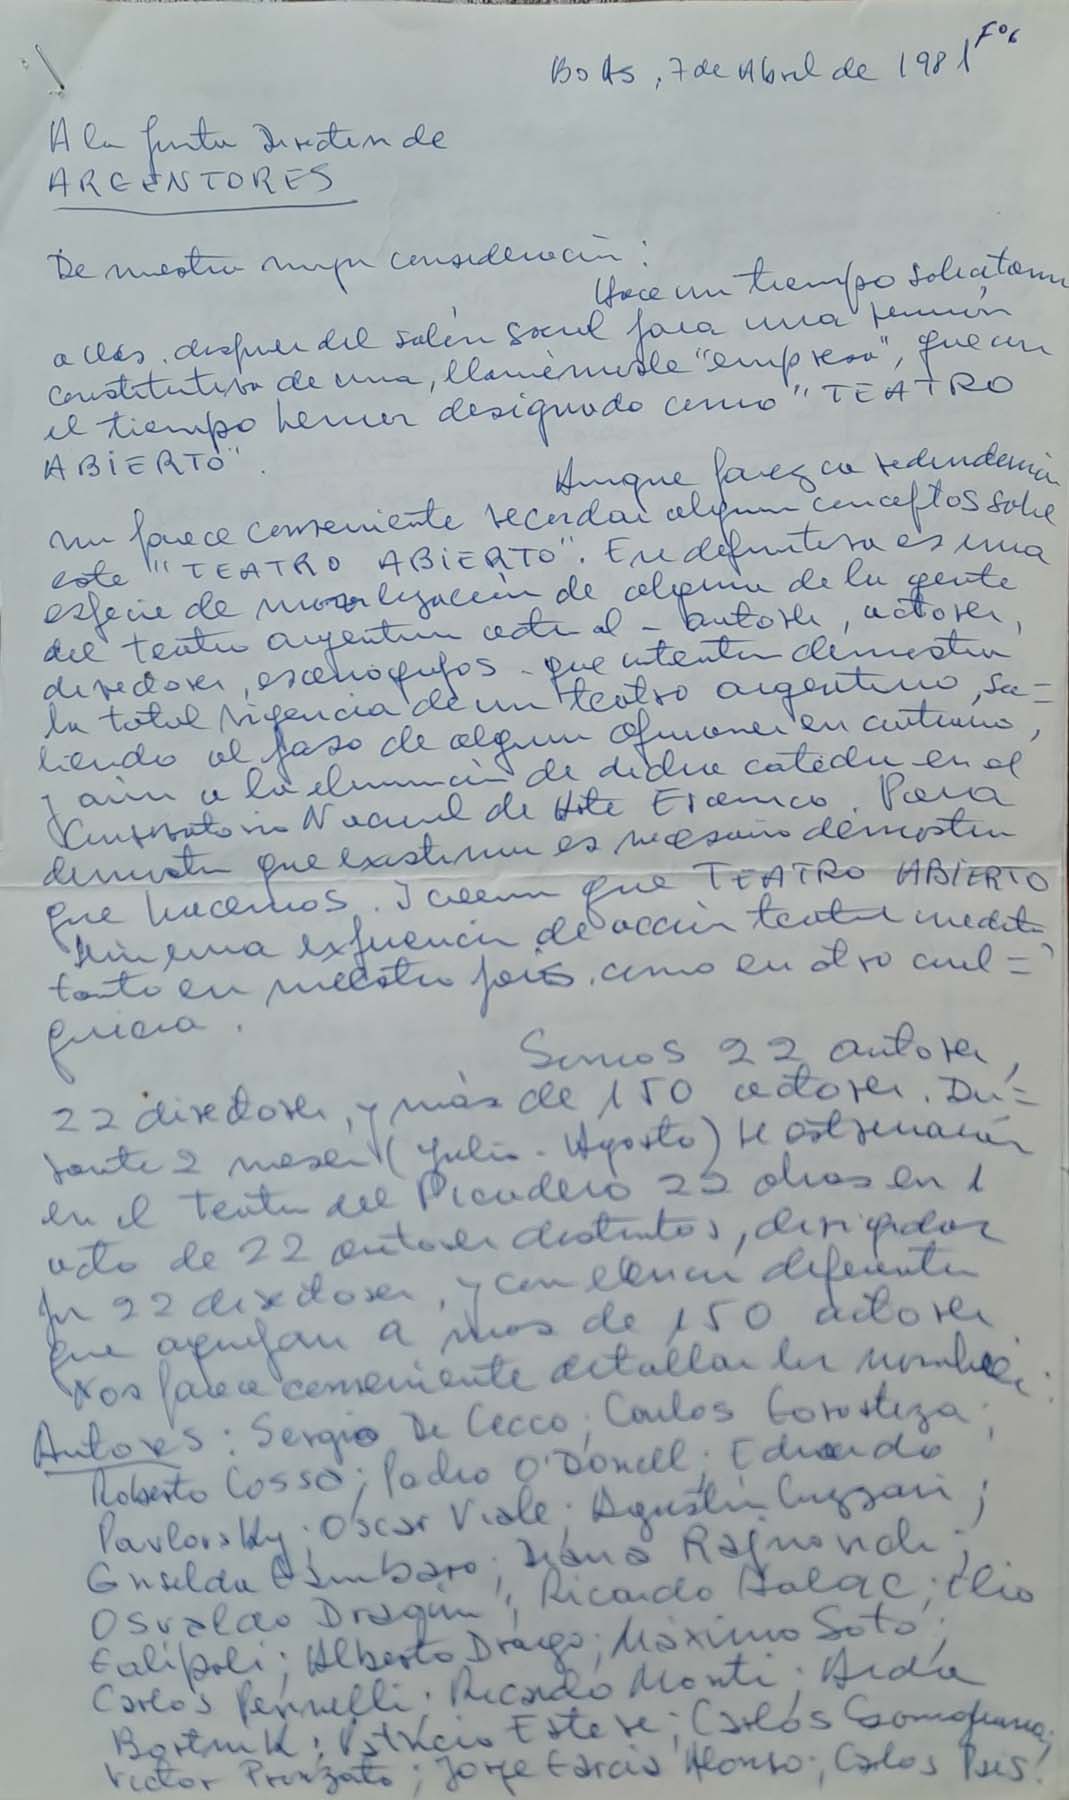 Bo As, 7 de Abril de 1981
A la Junta Directiva de
ARGENTORES
De nuestra mayor consideración:
Hace un tiempo solicitamos
a Uds. disponer del salón social para una reunión
constitutiva de una, llamémosle "empresa", que en
el tiempo hemos designado como "TEATRO
ABIERTO".
Aunque parezca redundancia
nos parece conveniente recordar algunos conceptos sobre
este "TEATRO ABIERTO". En definitiva es una
especie de movilización de alguna de la gente
del teatro argentino actual - autores, actores,
directores, escenógrafos - que intentan demostrar
la total vigencia de un teatro argentino, sa=
liendo al paso de algunas opiniones en contrario,
y aún a la eliminación de dicha cátedra en el
Conservatorio Nacional de Arte Escénico. Para
demostrar que existimos es necesario demostrar
que hacemos. Y creemos que TEATRO ABIERTO
una experiencia de acción teatral inédita,
tanto en nuestro país, como en otro cual=
quiera.
Somos 22 autores,
22 directores, y más de 150 actores. Du=
rante 2 meses (Julio - Agosto) se estrenarán
en el Teatro del Picadero 22 obras en 1
acto de 22 autores distintos, dirigidas
por 22 directores, y con elencos diferentes
que agrupan a más de 150 actores
Nos parece conveniente detallar los nombres:
Autores: Sergio De Cecco; Carlos Gorostiza;
Roberto Cossa; Pacho O'Donell; Eduardo
Pavlovsky; Oscar Viale; Agustín Cuzzani;
Griselda Gambaro; Diana Raznovich;
Osvaldo Dragún; Ricardo Halac; Elio
Galipoli; Alberto Drago; Máximo Soto;
Carlos Pennelli; Ricardo Monti; Aída
Bortnik; Patricio Esteve; Carlos Somigliana;
Víctor Pronzato; Jorge García Alonso; Carlos Pais.